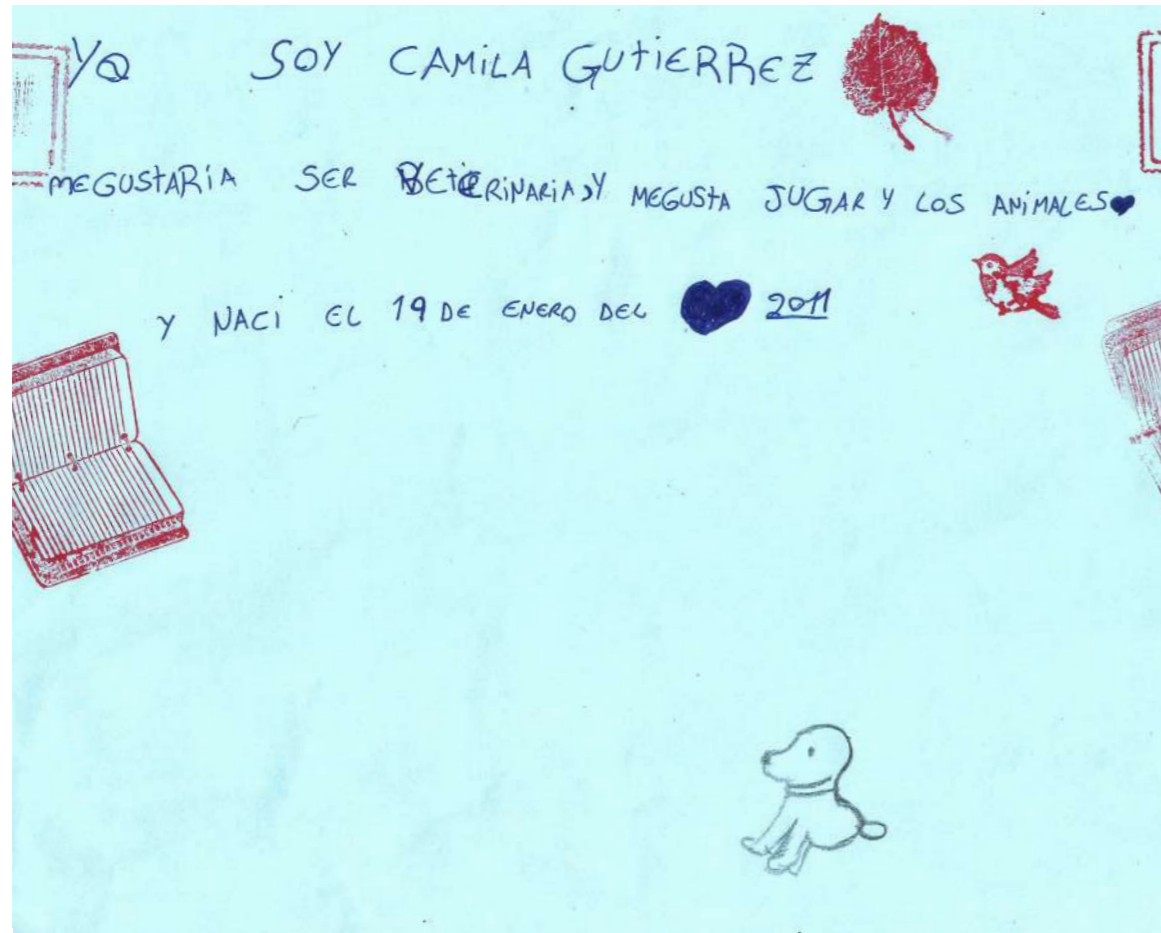 YO SOY CAMiLA GUtiERREZ
MEGUStARiA SER VEtERiNARiA,Y MEGUStA JUGAR Y LOS ANiMALES
Y NACi EL 19 DE ENERO DEL 2011